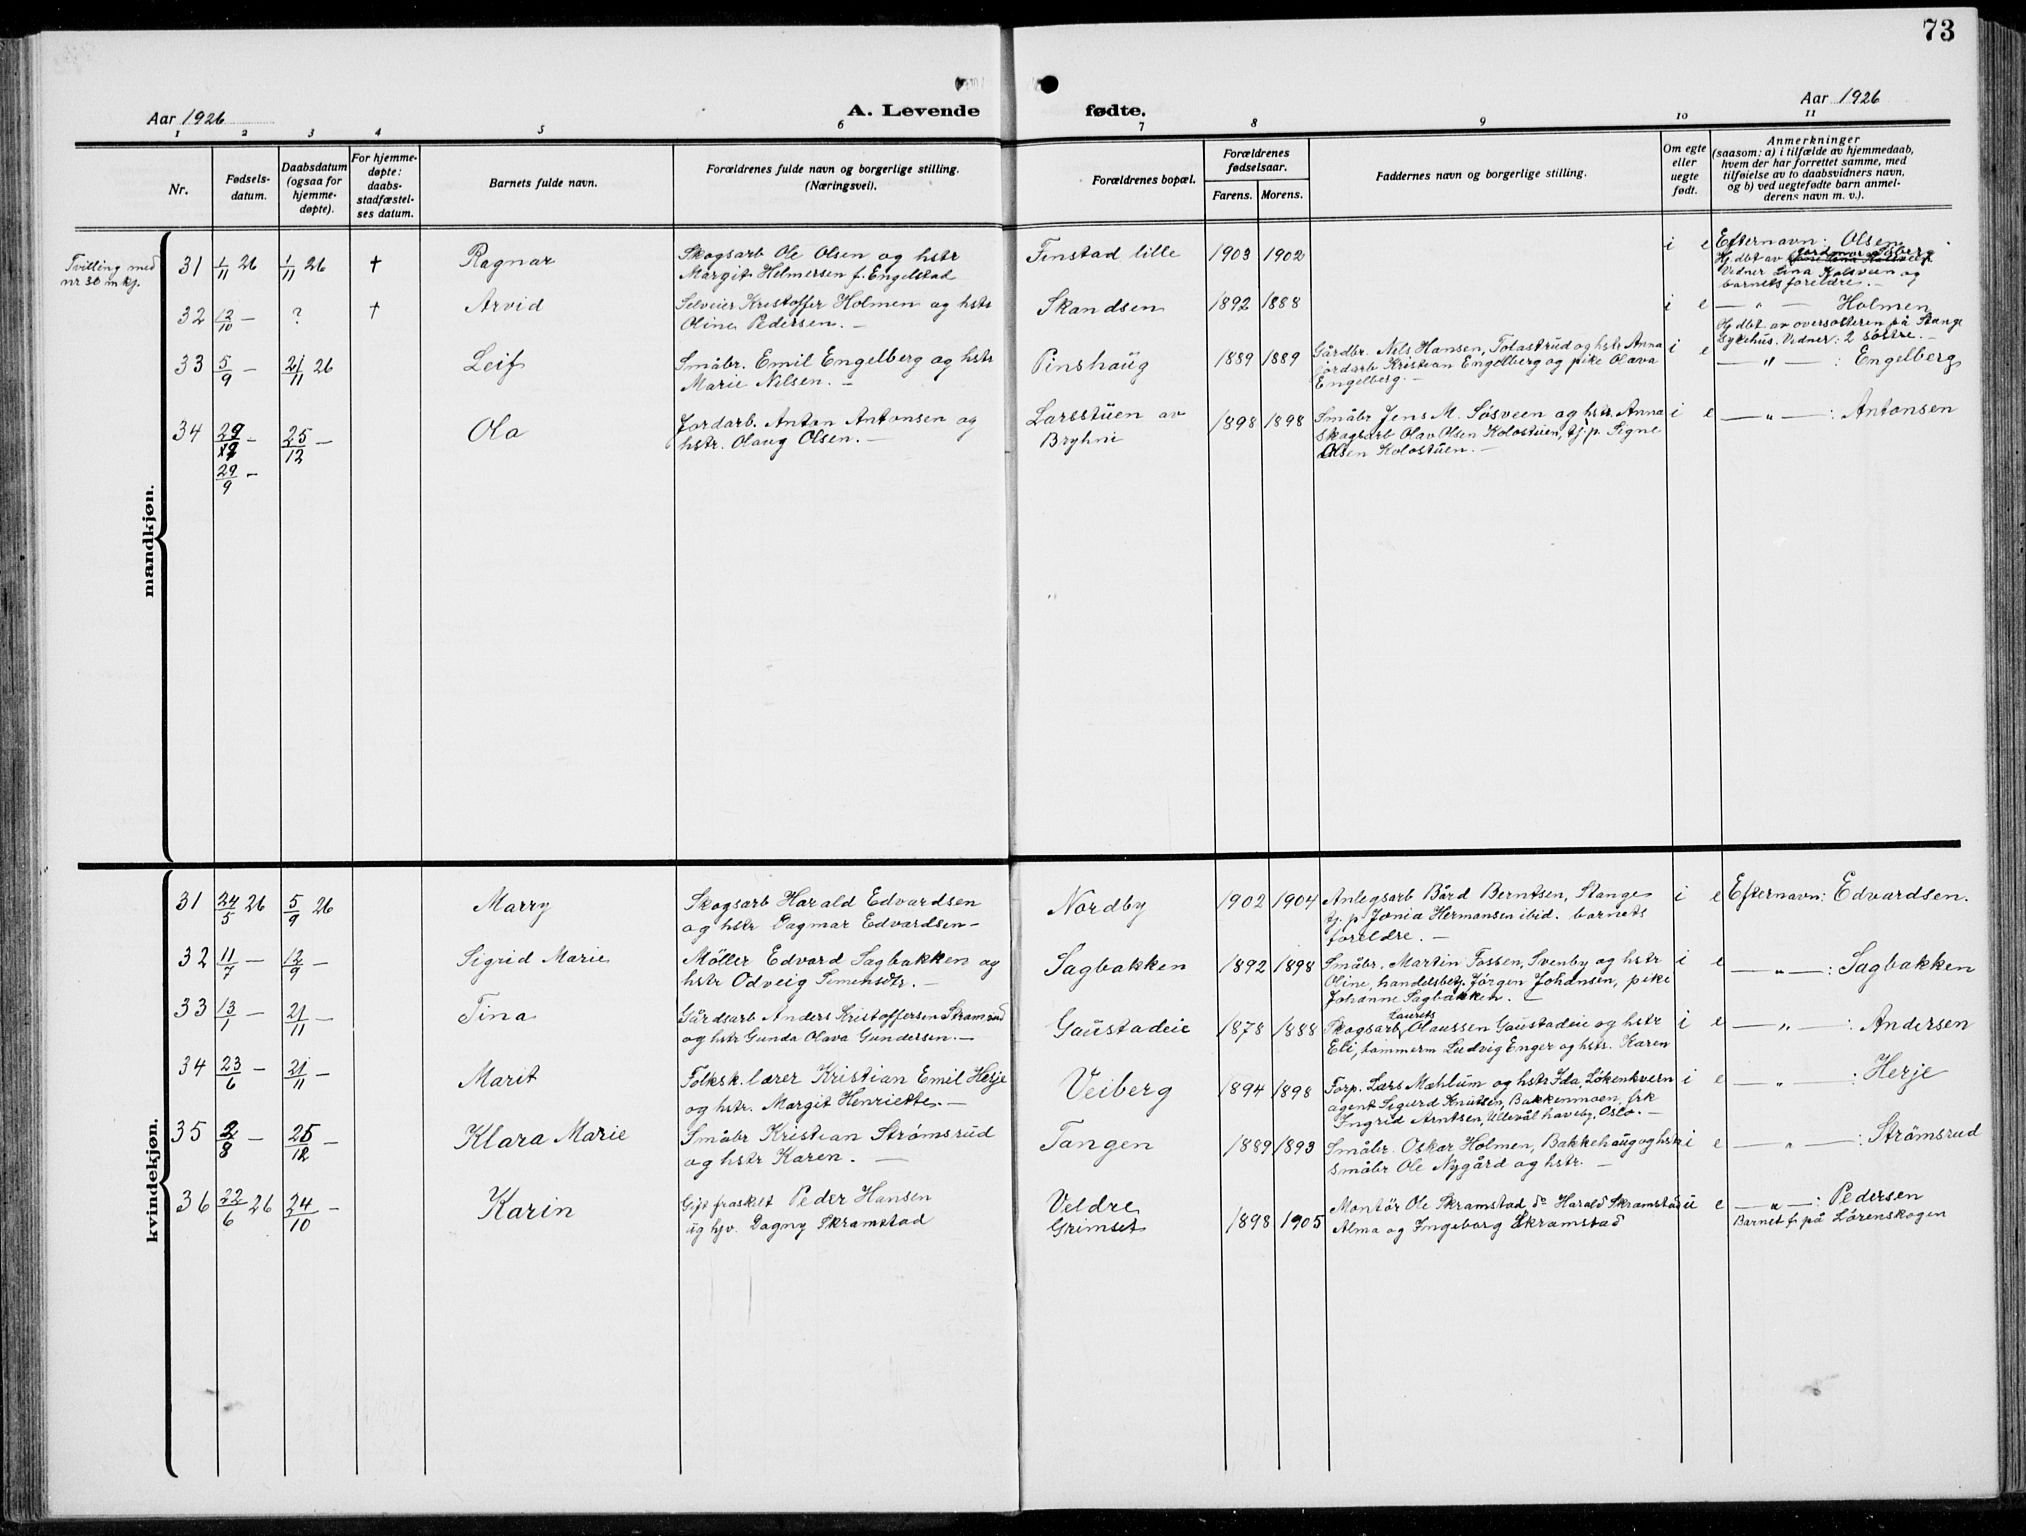 73
Aar 1926
A. Levende
fødte.
Aar 1926
1 2 3 4 5 6 7 8 9 10 11
Nr.
Fødsels-
datum.
Daabsdatum
(ogsaa for
hjemme-
døpte).
For hjemme-
døpte:
daabs-
stadfæstel-
ses datum.
Barnets fulde navn.
Forældrenes fulde navn og borgerlige stilling.
(Næringsvei).
Forældrenes bopæl.
Forældrenes
fødselsaar.
Farens. Morens.
Faddernes navn og borgerlige stilling.
Om egte
eller
uegte
født.
Anmerkninger
(saasom: a) i tilfælde av hjemmedaab,
hvem der har forrettet samme, med
tilføielse av to daabsvidners navn,
og b) ved uegtefødte barn anmel-
derens navn m. v.).
mandkjøn.
Tvilling med
nr 30 m kj.
31 1/11 26 1/11 26 † Ragnar
Skogsarb Ole Olsen og hstr
Margit Helmersen f. Engelstad
Finstad lille 1903 1902
i e Efternavn: Olsen
Hj.dbt av jordmor Osberg
Vidner Lina Kolsveen og
barnets foreldre. —
32 12/10 — ? † Arvid
Selveier Kristoffer Holmen og hstr
Oline Pedersen. —
Skandsen 1892 1888
i e — " — Holmen
Hj.dbt av oversøsteren på Stange
Sykehus. Vidner: 2 søstre. —
33 5/9 — 21/11 26 Leif
Småbr. Emil Engelberg og hstr
Marie Nilsen. —
Pinshaug 1889 1889
Gårdbr. Nils Hansen, Tolastrud og hstr Anna
jordarb Kristian Engelberg og pike Olava
Engelberg. —
i e — " — : Engelberg
34 29/12 — 25/12 — Ola
29/9 —
Jordarb. Anton Antonsen og
hstr. Olaug Olsen. —
Larsstuen av
Bryhni
1898 1898
Småbr Jens M. Søsveen og hstr. Anna
skogsarb Olav Olsen Kolostuen, tj. p. Signe
Olsen Kolostuen. —
i e — " — : Antonsen
kvindekjøn.
31 24/5 26 5/9 26 Marry
Skogsarb Harald Edvardsen
og hstr Dagmar Edvardsen —
Nordby 1902 1904
Anlegsarb Bård Berntsen, Stange
tj. p. Jonia Hermansen ibid. barnets
foreldre. —
i e Efternavn: Edvardsen.
32 11/7 — 12/9 — Sigrid Marie
Møller Edvard Sagbakken og
hstr Odveig Simensdtr. —
Sagbakken 1892 1898
Småbr. Martin Fossen, Svenby og hstr
Oline, handelsbetj. Jørgen Johansen, pike
Johanne Sagbakken. —
i e — " — : Sagbakken
33 13/1 — 21/11 — Tina
Gårdsarb Anders Kristoffersen Stramrud
og hstr Gunda Olava Gundersen. —
Gaustadeie 1878 1888
Skogsarb Laurits Olaussen Gaustadeie og hstr
Eli, tømmerm Ludvig Enger og hstr. Karen
i e — " — : Andersen
34 23/6 — 21/11 — Marit
Folksk.lærer Kristian Emil Herje
og hstr. Margit Henriette. —
Veiberg 1894 1898
Forp. Lars Mæhlum og hstr Ida, Løkenkvern
agent Sigurd Knutsen, Bakkenmoen, frk
Ingrid Arntsen, Ullevål haveby, Oslo. —
i e — " — : Herje
35 2/8 — 25/12 — Klara Marie
Småbr Kristian Strømsrud
og hstr Karen. —
Tangen 1889 1893
Småbr. Oskar Holmen, Bakkehaug og hstr
Småbr Ole Nygård og hstr. —
i e — " — : Strømsrud
36 22/6 26 24/10 — Karin
Gift fraskilt Peder Hansen
ug hjv. Dagny Skramstad
Veldre
Grimset
1898 1905
Montör Ole Skramstad, do Harald Skramstad
Alma og Ingeborg Skramstad
u e — " — : Pedersen
Barnet f. på Lørenskogen